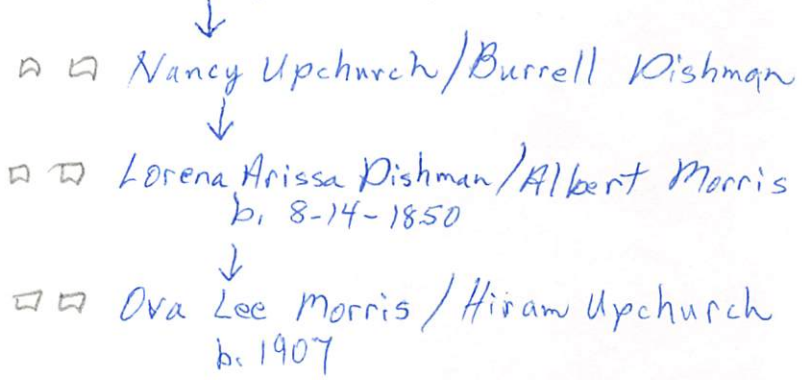 Nancy Upchurch/Burrell Dishman
Lorena Arissa Dishman/Albert Morris
b. 8-14-1850
Ova Lee Morris/Hiram Upchurch
b. 1907